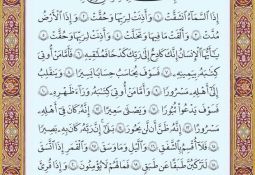 إِذَا ٱلسَّمَآءُ ٱنشَقَّتْ ١ وَأَذِنَتْ لِرَبِّهَا وَحُقَّتْ ٢ وَإِذَا ٱلْأَرْضُ
مُدَّتْ ٣ وَأَلْقَتْ مَا فِيهَا وَتَخَلَّتْ ٤ وَأَذِنَتْ لِرَبِّهَا وَحُقَّتْ ٥
يَٰٓأَيُّهَا ٱلْإِنسَٰنُ إِنَّكَ كَادِحٌ إِلَىٰ رَبِّكَ كَدْحًا فَمُلَٰقِيهِ ٦ فَأَمَّا مَنْ أُوتِىَ
كِتَٰبَهُۥ بِيَمِينِهِۦ ٧ فَسَوْفَ يُحَاسَبُ حِسَابًا يَسِيرًا ٨ وَيَنقَلِبُ
إِلَىٰٓ أَهْلِهِۦ مَسْرُورًا ٩ وَأَمَّا مَنْ أُوتِىَ كِتَٰبَهُۥ وَرَآءَ ظَهْرِهِۦ ١٠
فَسَوْفَ يَدْعُوا۟ ثُبُورًا ١١ وَيَصْلَىٰ سَعِيرًا ١٢ إِنَّهُۥ كَانَ فِىٓ أَهْلِهِۦ
مَسْرُورًا ١٣ إِنَّهُۥ ظَنَّ أَن لَّن يَحُورَ ١٤ بَلَىٰٓ إِنَّ رَبَّهُۥ كَانَ بِهِۦ بَصِيرًا
١٥ فَلَآ أُقْسِمُ بِٱلشَّفَقِ ١٦ وَٱلَّيْلِ وَمَا وَسَقَ ١٧ وَٱلْقَمَرِ إِذَا ٱتَّسَقَ
١٨ لَتَرْكَبُنَّ طَبَقًا عَن طَبَقٍ ١٩ فَمَا لَهُمْ لَا يُؤْمِنُونَ ٢٠ وَإِذَا قُرِئَ